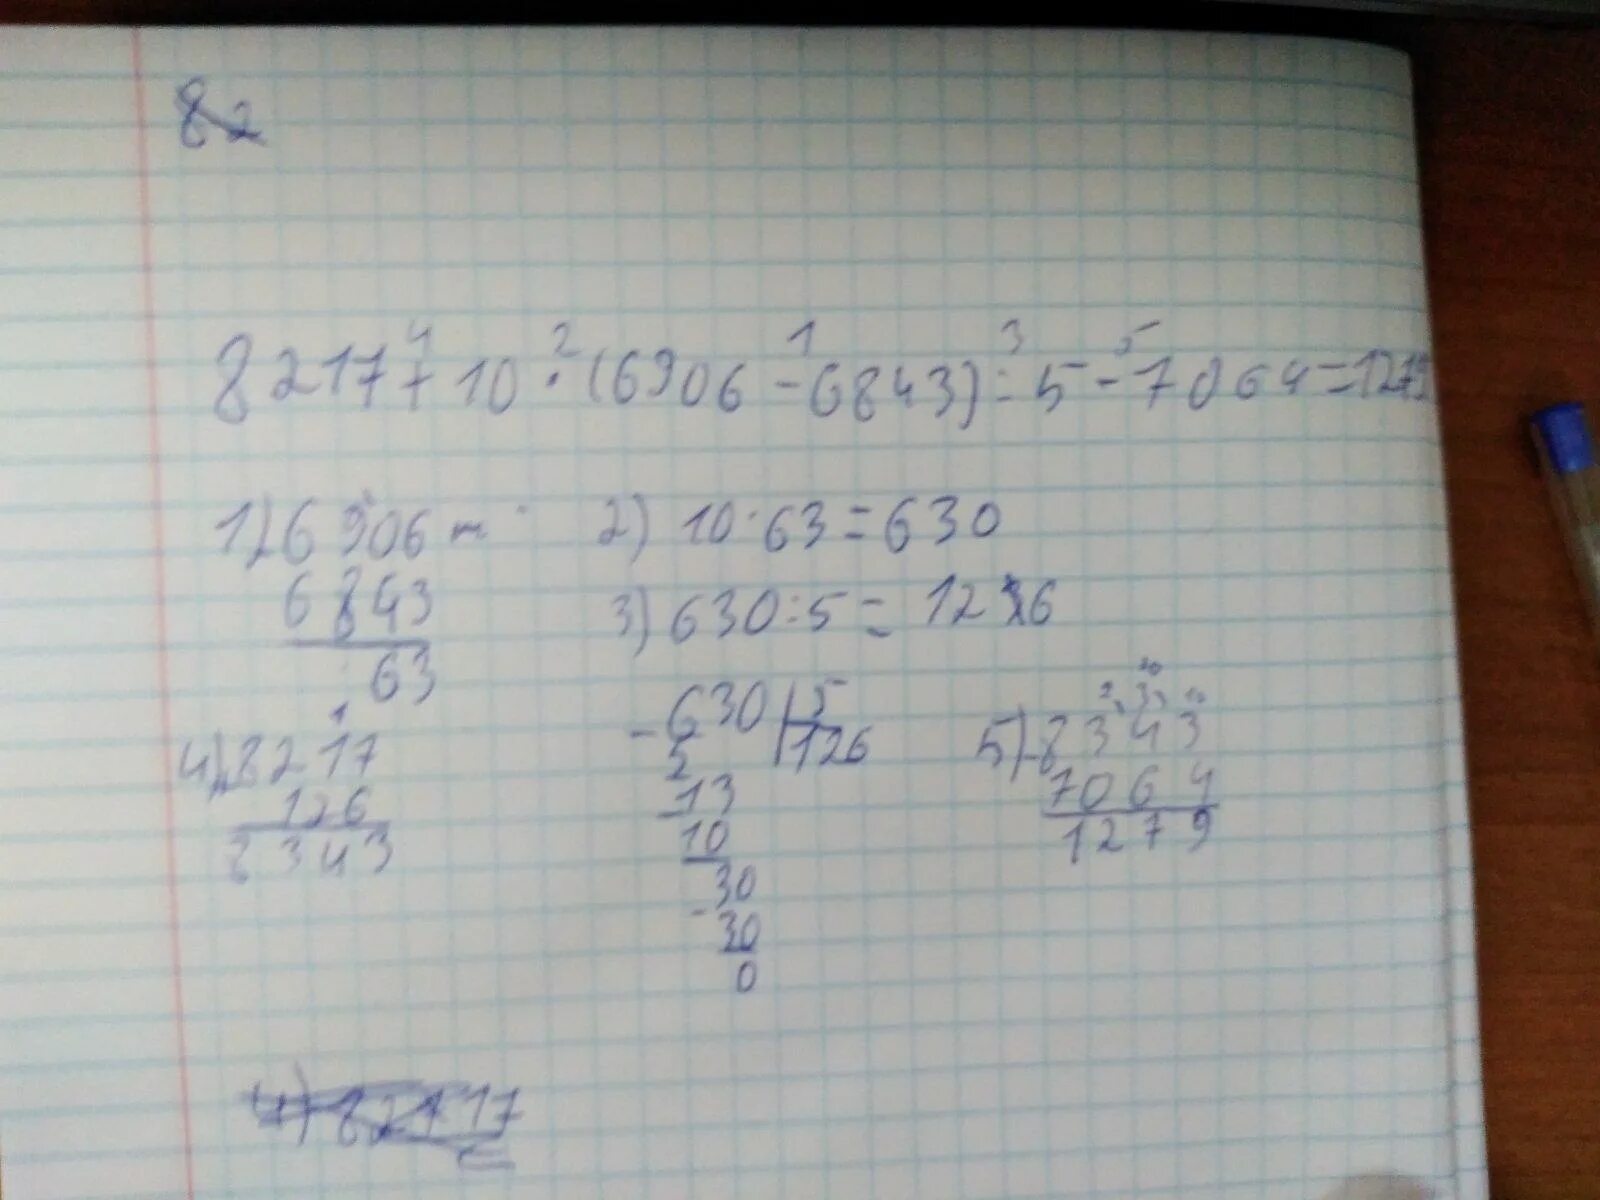 82
4 2 1 3 5
8217 + 10 · (6906 - 6843) : 5 - 7064 = 1279
1) 6906 -
6843
63
2) 10 · 63 = 630
3) 630 : 5 = 126
- 630 | 5
5 126
- 13
10
- 30
30
0
1
4) 8217
126
8343
5) - 8343
7064
1279
4) 8217